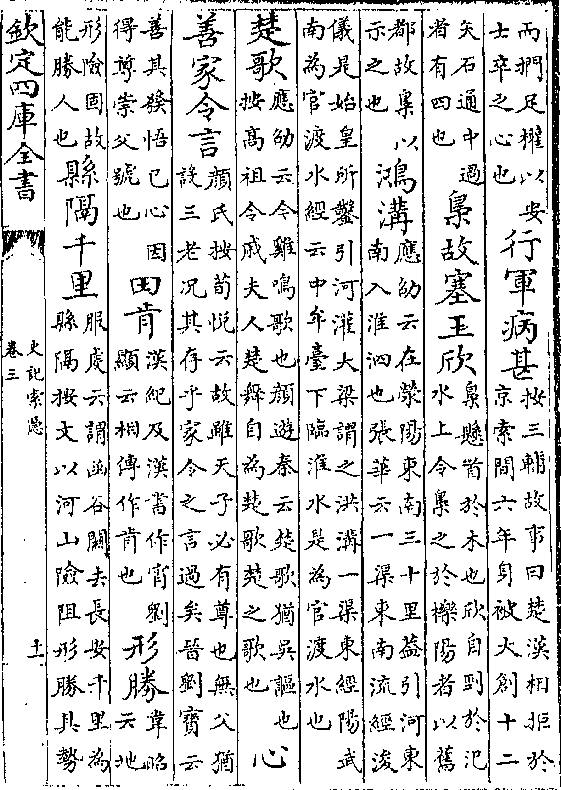 而捫足權以安
士卒之心也
行軍病甚
按三輔故事曰楚漢相拒於
京索間六年身被大創十二
矢石通中過
者有四也
梟故塞王欣
梟懸首於木也欣自剄於汜
水上令梟之於櫟陽者以舊
都故梟以
示之也
鴻溝
應劭云在滎陽東南三十里葢引河東
南入淮泗也張華云一渠東南流經浚
儀是始皇所鑿引河灌大梁謂之洪溝一渠東經陽武
南為官渡水經云中牟臺下臨淮水是為官渡水也
楚歌
應劭云今雞鳴歌也顔遊秦云楚歌猶吳謳也
按高祖令戚夫人楚舞自為楚歌楚之歌也
心
善家令言
顔氏按荀悅云故雖天子必有尊也無父猶
設三老況其存乎家令之言過矣晉劉寶云
善其發悟已心因
得尊崇父號也
田肯
漢紀及漢書作宵劉
顯云相傳作肯也
形勝
韋昭
云地
形險固故
能勝人也
縣隔千里
服虔云謂函谷關去長安千里為
縣隔按文以河山險阻形勝其勢
欽定四庫全書
史記索隱
卷三
十一